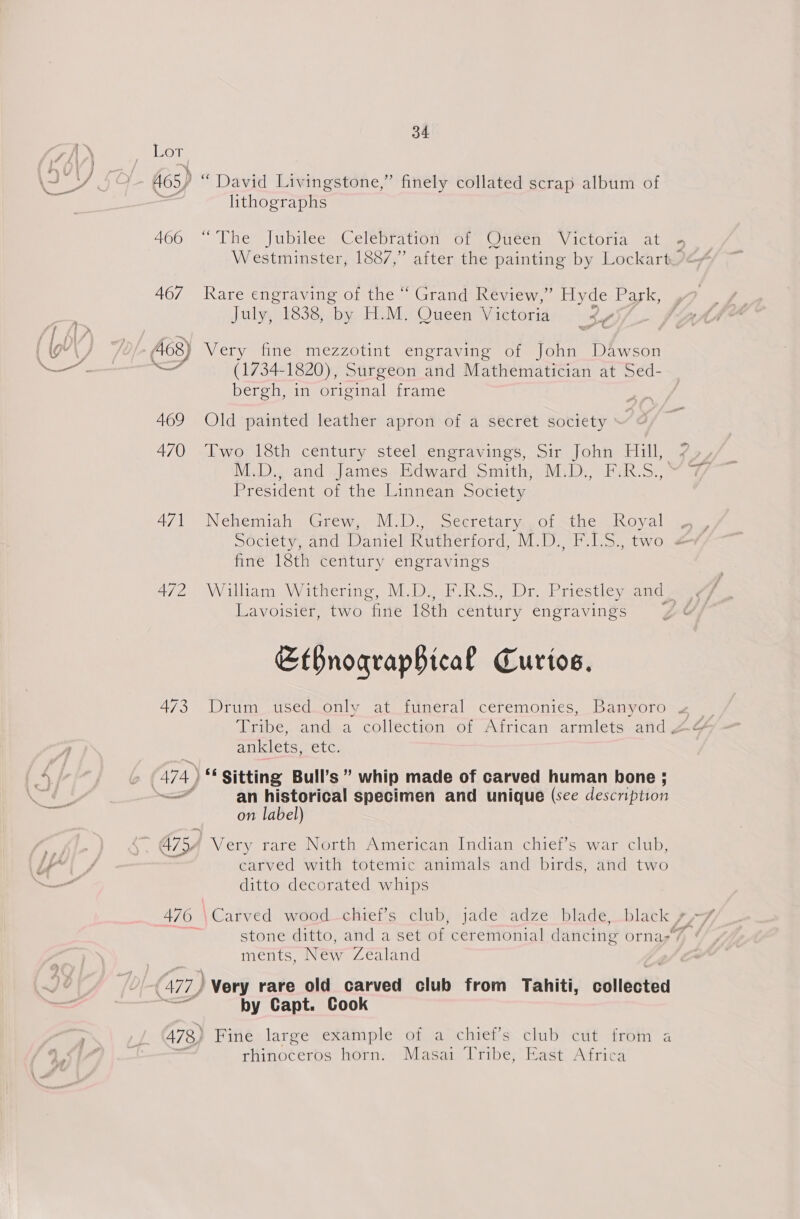 34
Lot
465 “ David Livingstone,” finely collated scrap album of
lithographs
466 “ The Jubilee Celebration of Queen Victoria at
Westminster, 1887,” after the painting by Lockart
467 Rare engraving of the “ Grand Review,” Hyde Park,
July, 1838, by H.M. Queen Victoria
468 Very fine mezzotint engraving of John Dawson
(1734-1820), Surgeon and Mathematician at Sed-
bergh, in original frame
469 Old painted leather apron of a secret society
470 Two 18th century steel engravings, Sir John Hill,
M.D., and James Edward Smith, M.D., F.R.S.,
President of the Linnean Society
471 Nehemiah Grew, M.D., Secretary of the Royal
Society, and Daniel Rutherford, M.D., F.L.S., two
fine 18th century engravings
472 William Withering, M.D., F.R.S., Dr. Priestley and
Lavoisier, two fine 18th century engravings
Ethnographical Curios.
473 Drum used only at funeral ceremonies, Banyoro
Tribe, and a collection of African armlets and
anklets, etc.
474 “ Sitting Bull’s ” whip made of carved human bone ;
an historical specimen and unique (see description
on label)
475 Very rare North American Indian chief’s war club,
carved with totemic animals and birds, and two
ditto decorated whips
476 Carved wood chief’s club, jade adze blade, black
stone ditto, and a set of ceremonial dancing orna-
ments, New Zealand
477 Very rare old carved club from Tahiti, collected
by Capt. Cook
478 Fine large example of a chief’s club cut from a
rhinoceros horn. Masai Tribe, East Africa